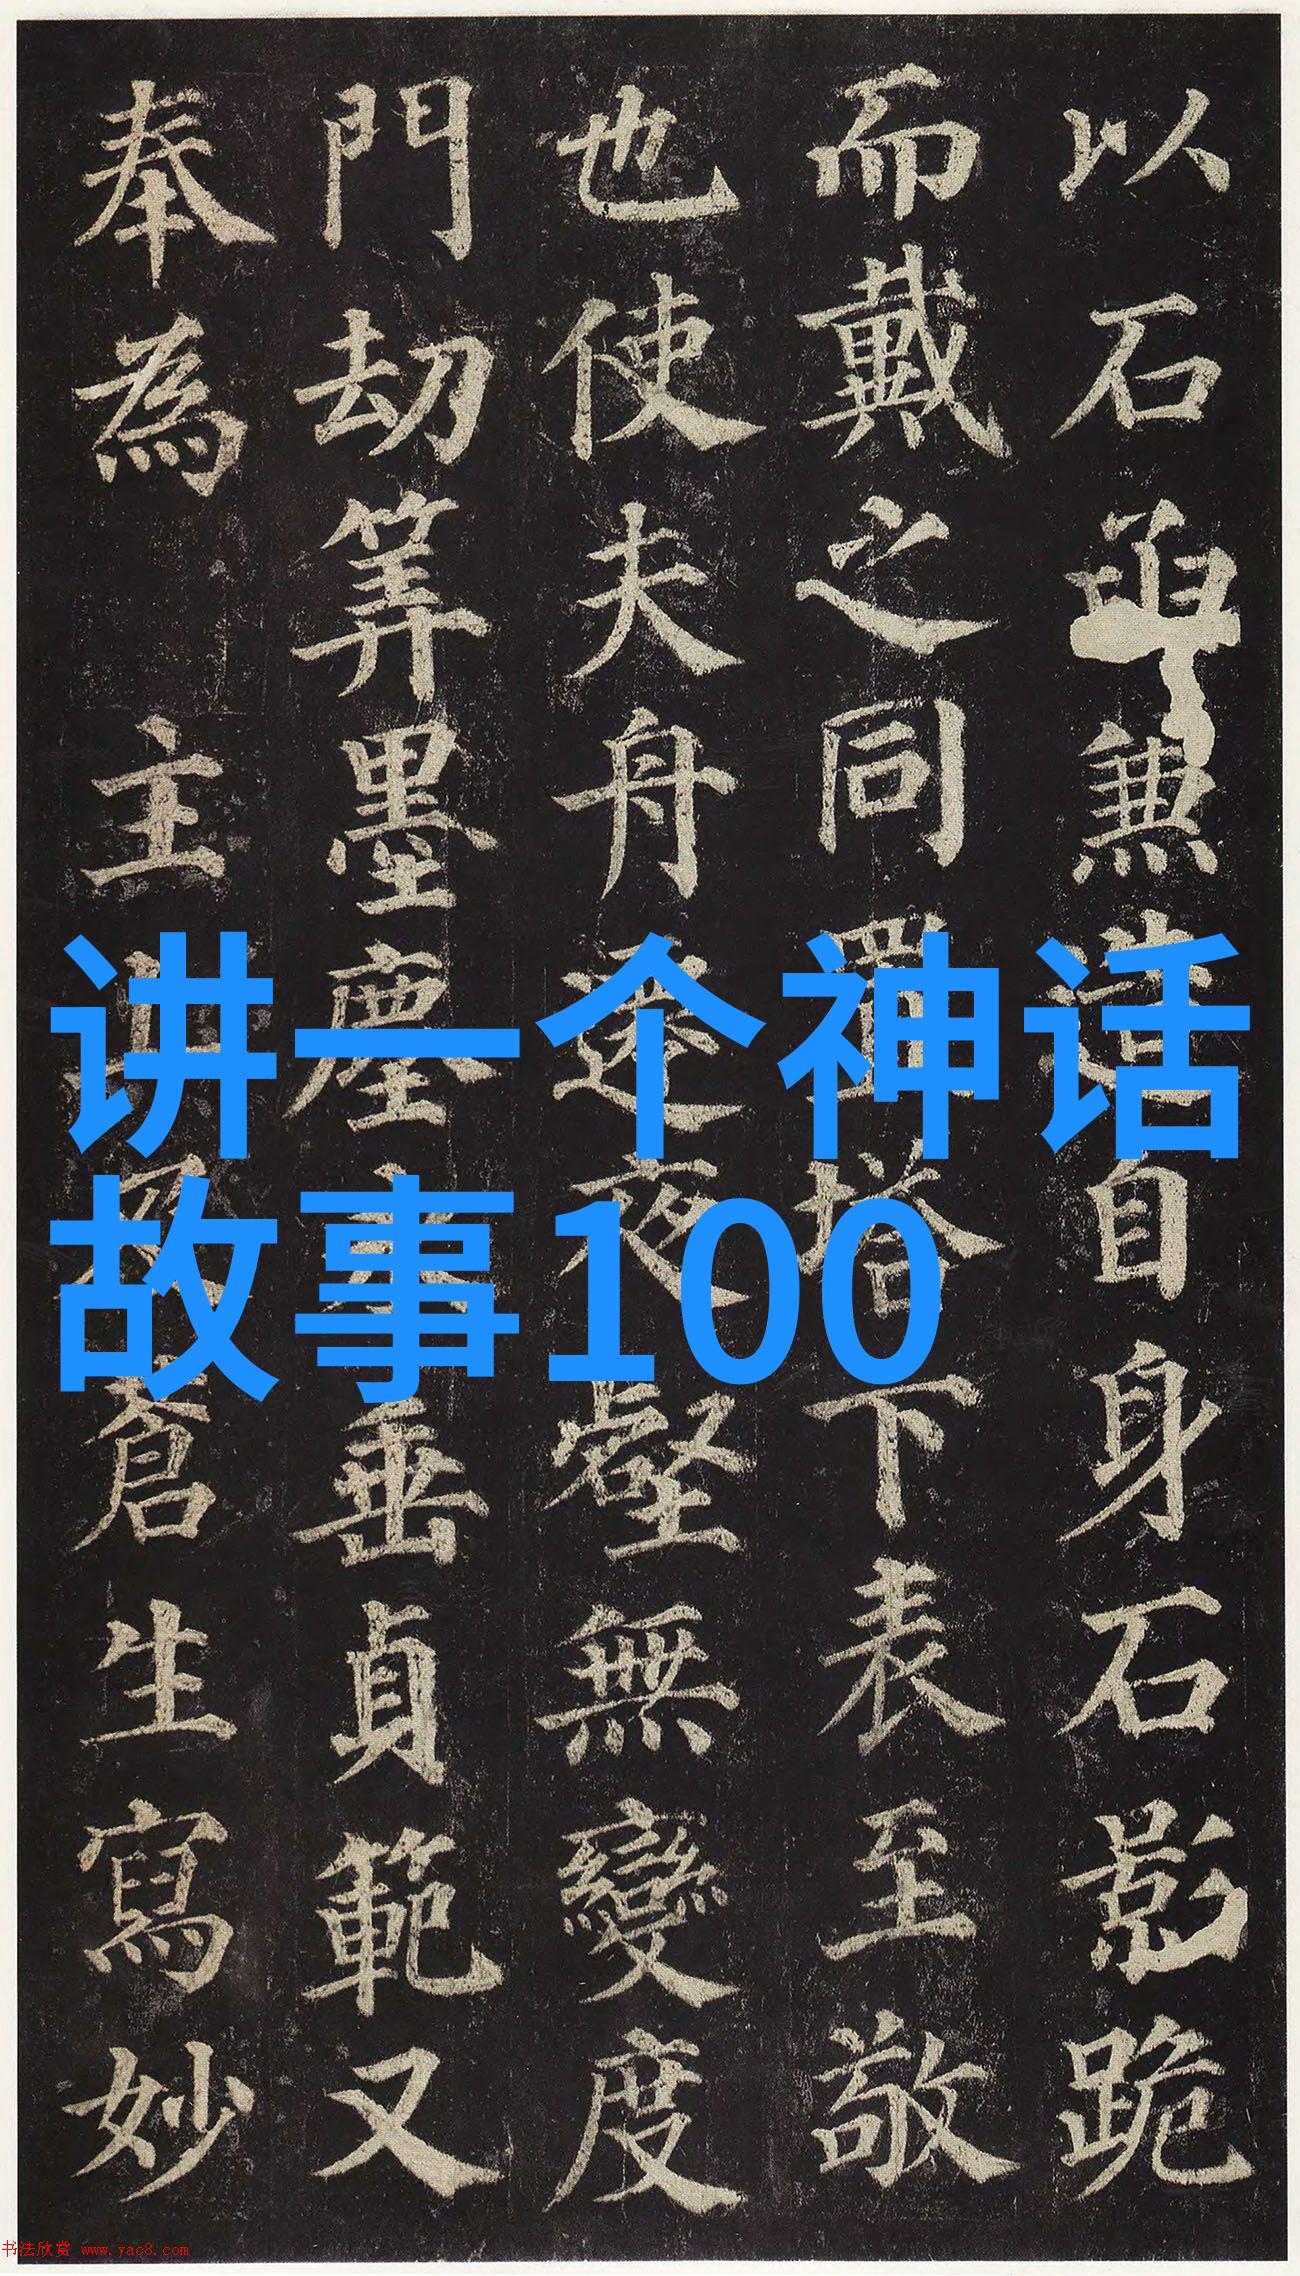 以石函兼造自身石影跪
而戴之同置塔下表至敬
也使夫舟遷夜壑無變度
門劫筭墨塵永垂貞範又
奉為 主上及蒼生寫妙
讲一个神话
故事100
书法欣赏 www.yac8.com